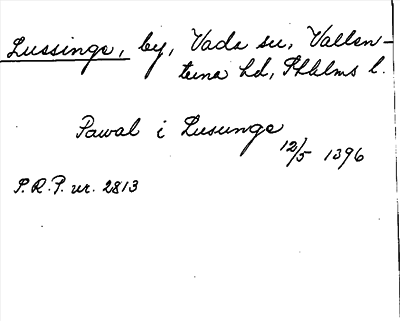 Lussinge, by, Vada sn, Vallen-
tuna hd, Sthlms l.
Pawal i Lusunge
12/5 1396
S.R.P. nr. 2813